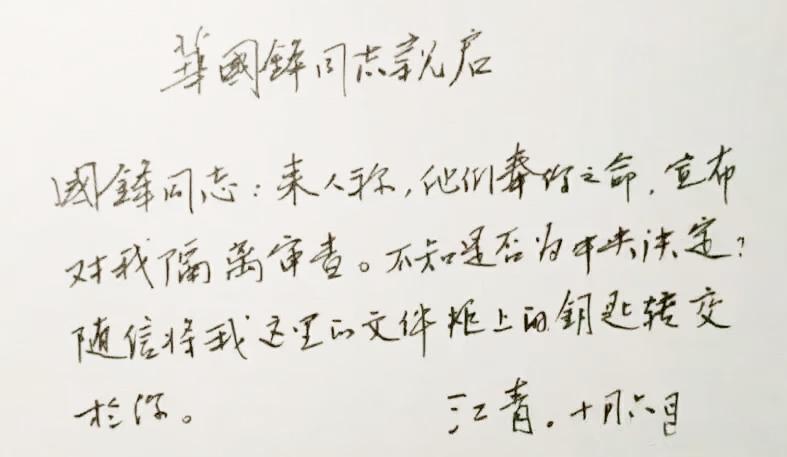 華國鋒同志親启
國鋒同志：来人称，他们奉你之命，宣布
对我隔离审查。不知是否为中央决定？
随信将我这里的文件柜上的钥匙转交
於你。 江青。十月六日